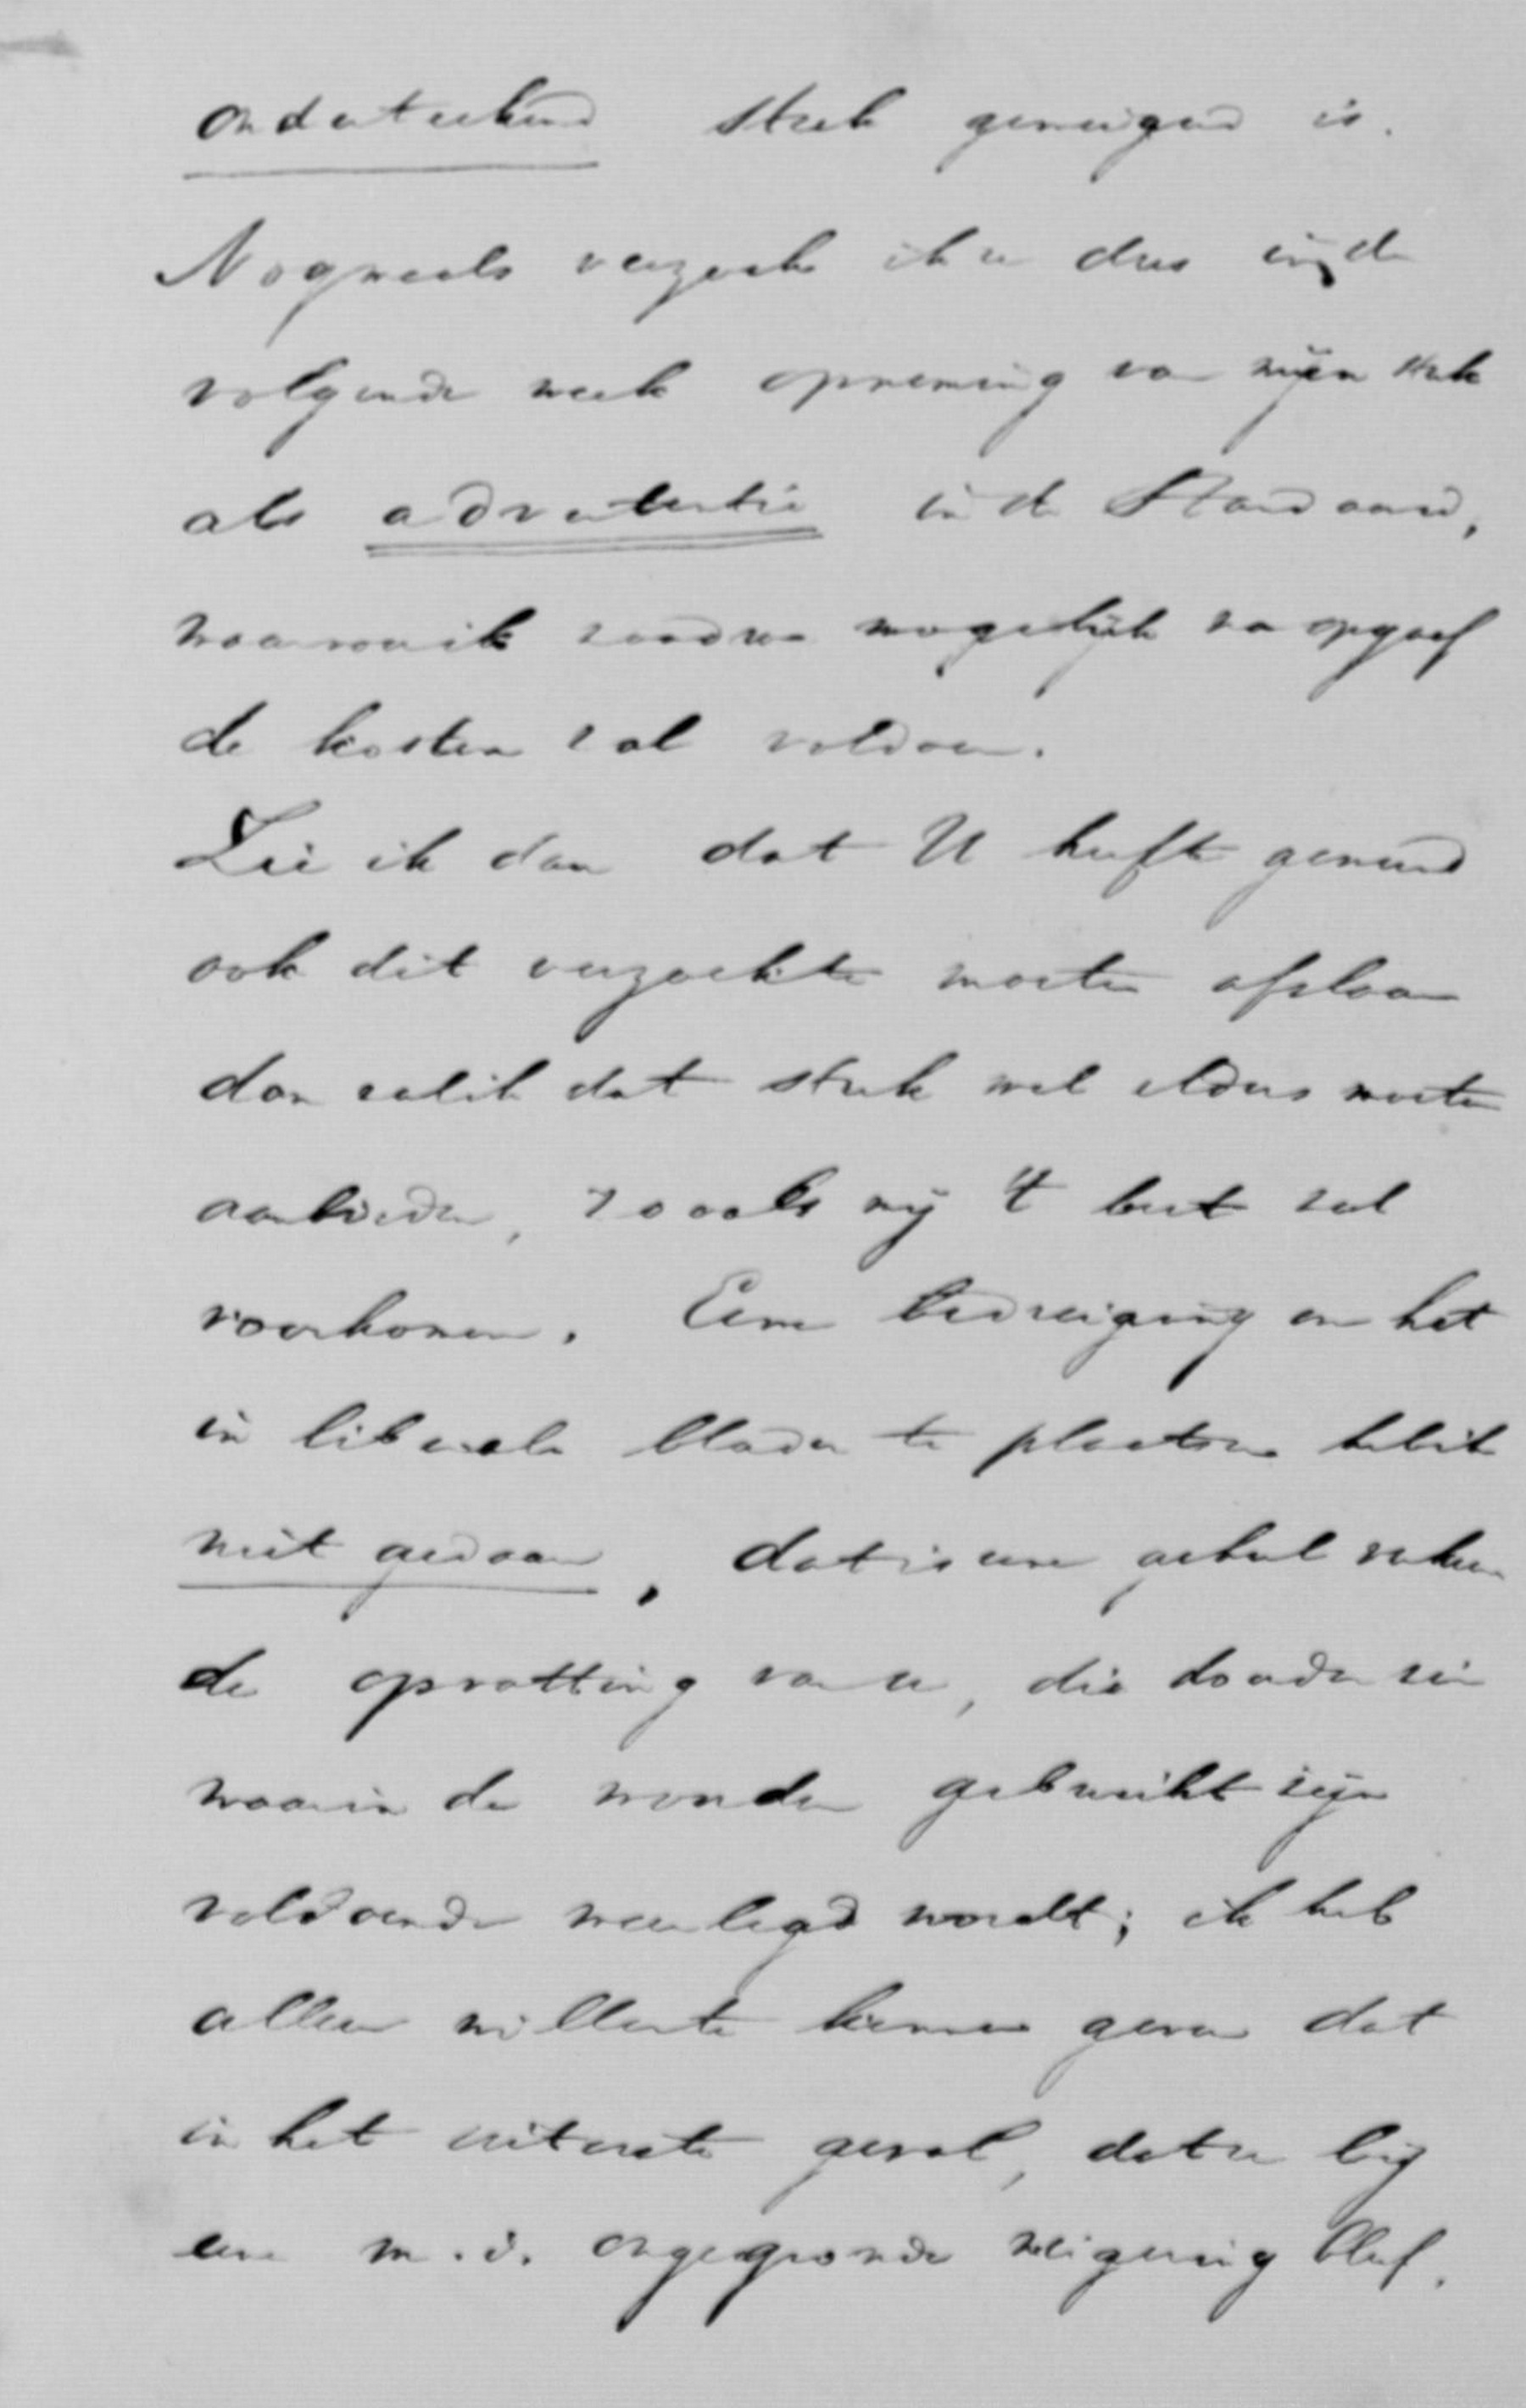 onderteekend stuk geweigerd is.
Nogmaals verzoek ik u dus in de
volgende week opneming van mijn stuk
als advertentie in de Standaard,
waarvan ik zoodra mogelijk na opgaaf
de kosten zal voldoen.
Zie ik dan dat U heeft gemeend
ook dit verzoek te moeten afslaan
dan zal ik dat stuk wel elders moeten
aanbieden, zooals mij 't best zal
voorkomen. Eene bedreiging om het
in liberale bladen te plaatsen heb ik
niet gedaan, dat is eene geheel verkeer
de opvatting van u, die door den zin
waarin de woorden gebruikt zijn
voldoende weerlegd wordt; ik heb
alleen willen te kennen geven dat
in het uiterste geval, dat u bij
eene m.i. ongegronde weigering bleef,